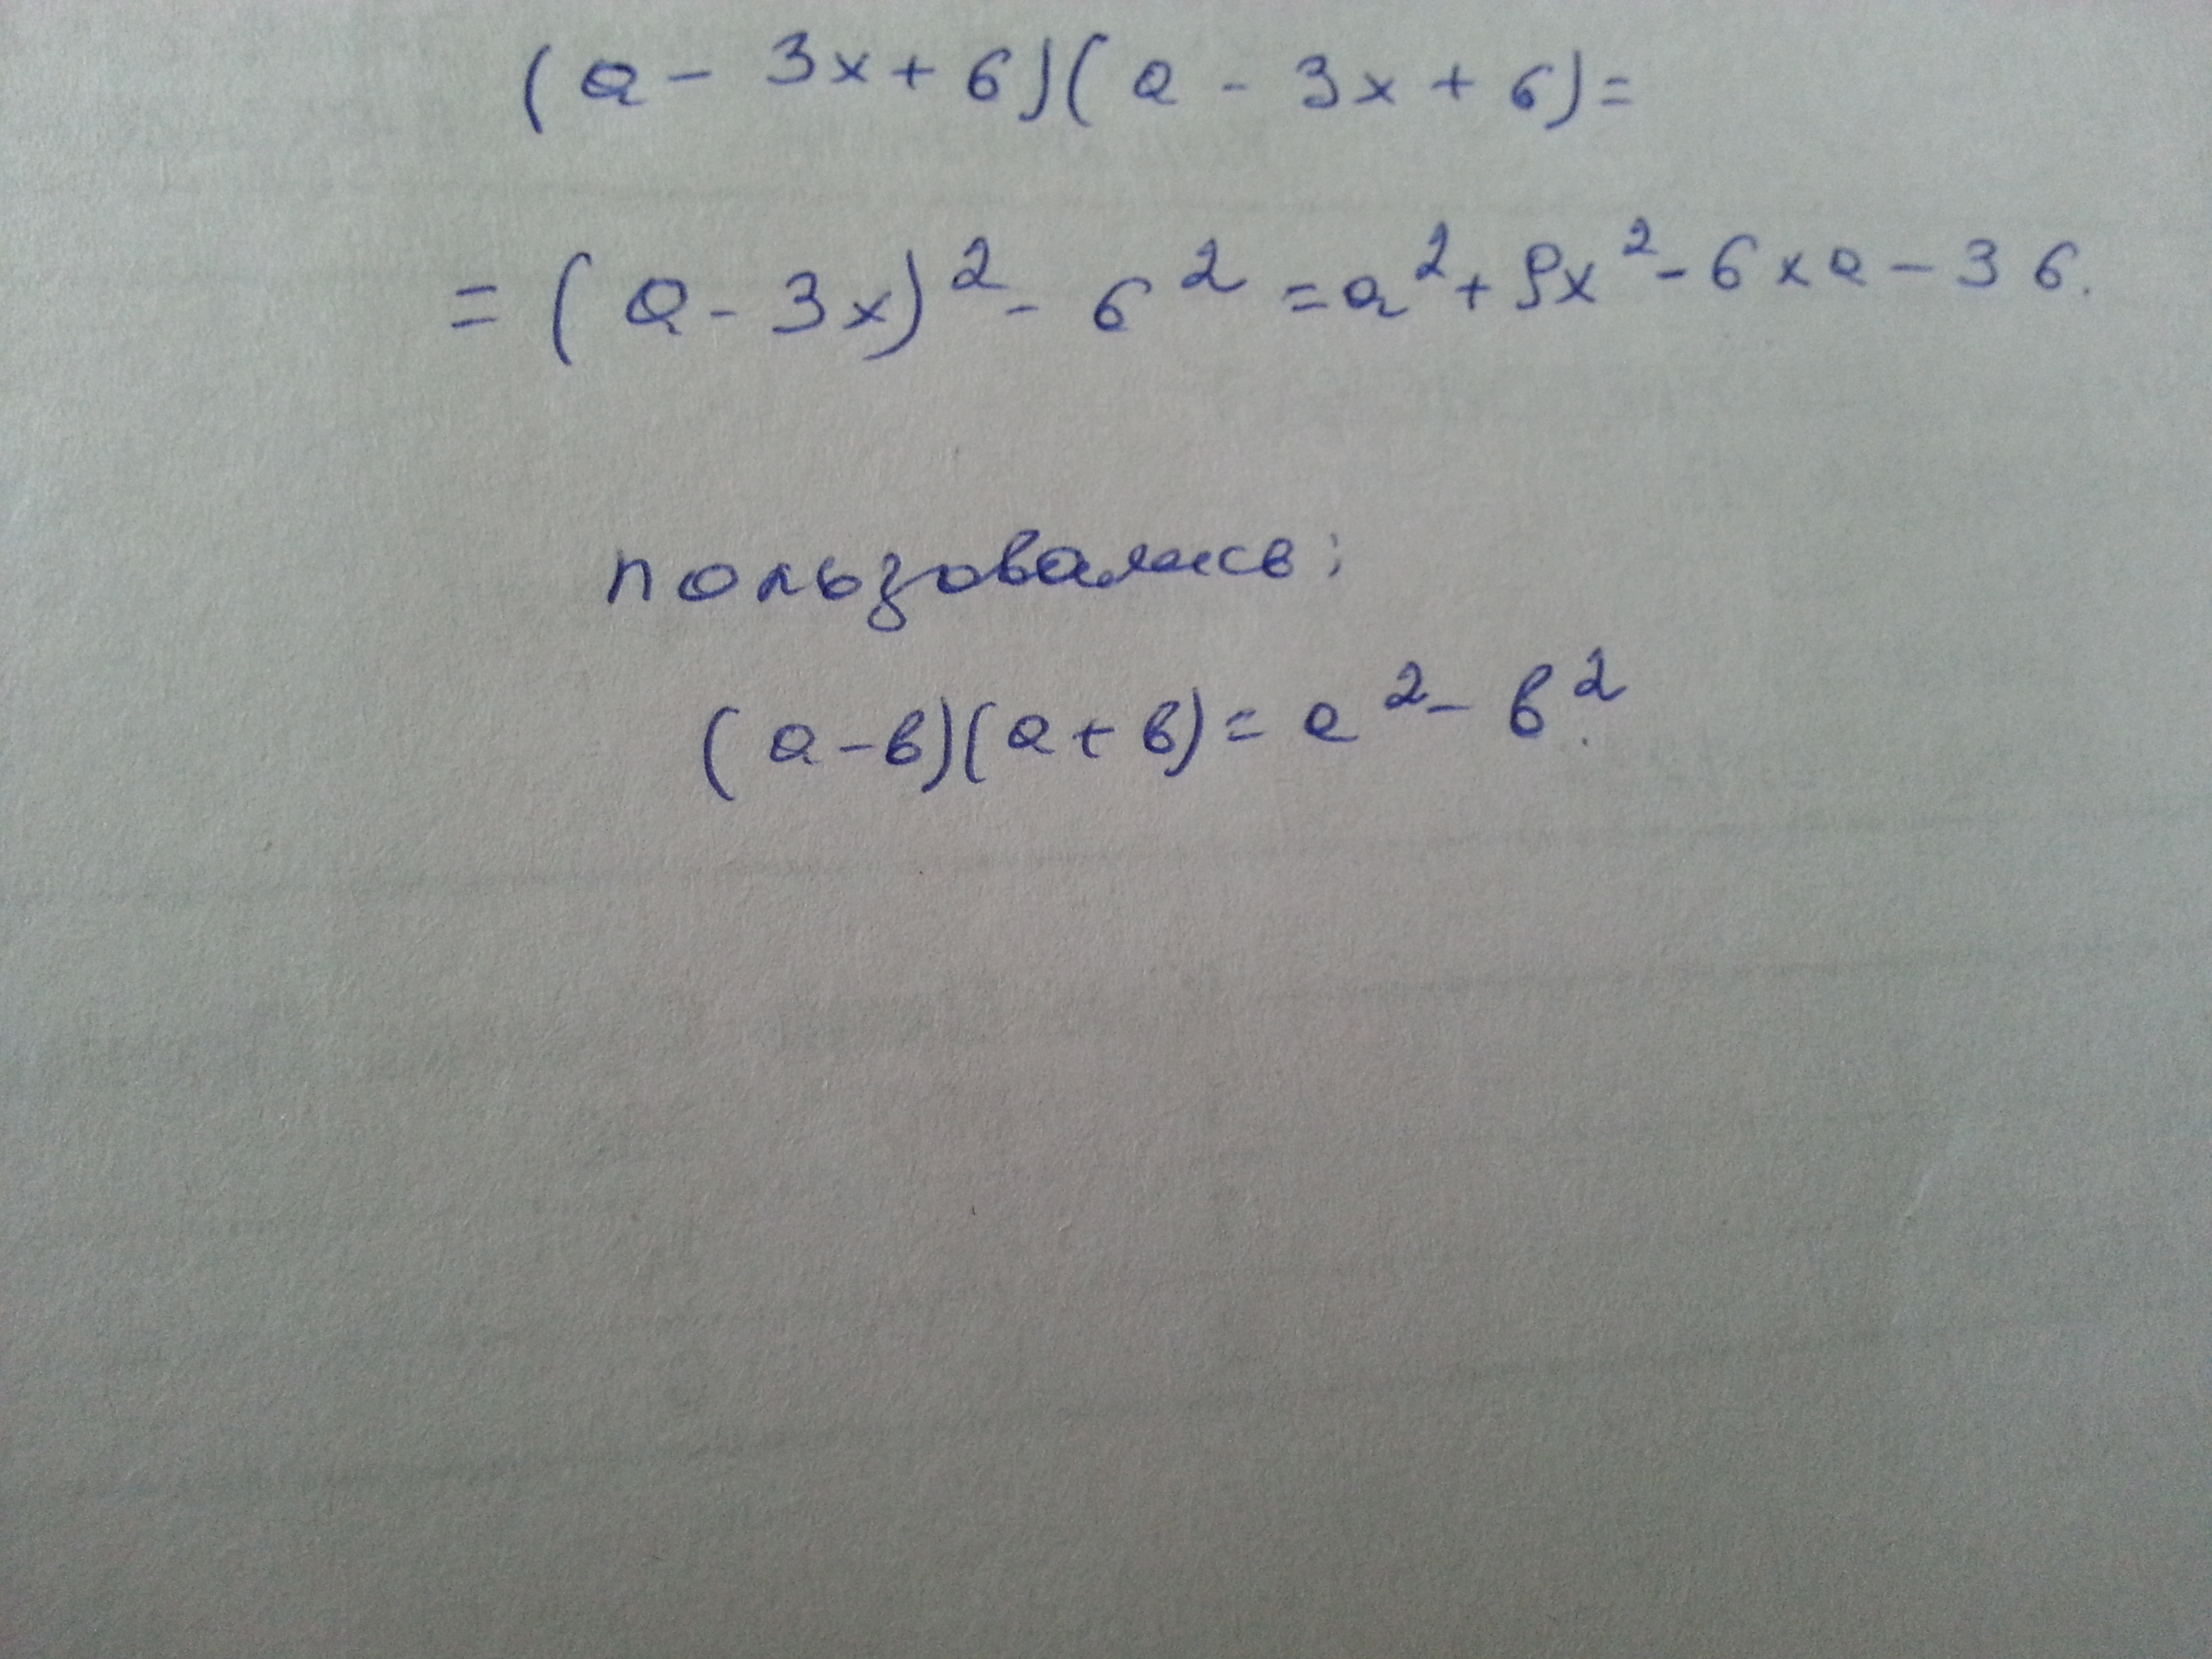 (a - 3x + 6)(a - 3x + 6) =
= (a - 3x)² - 6² = a² + 9x² - 6xa - 36.
пользовались:
(a - в)(a + в) = a² - в².